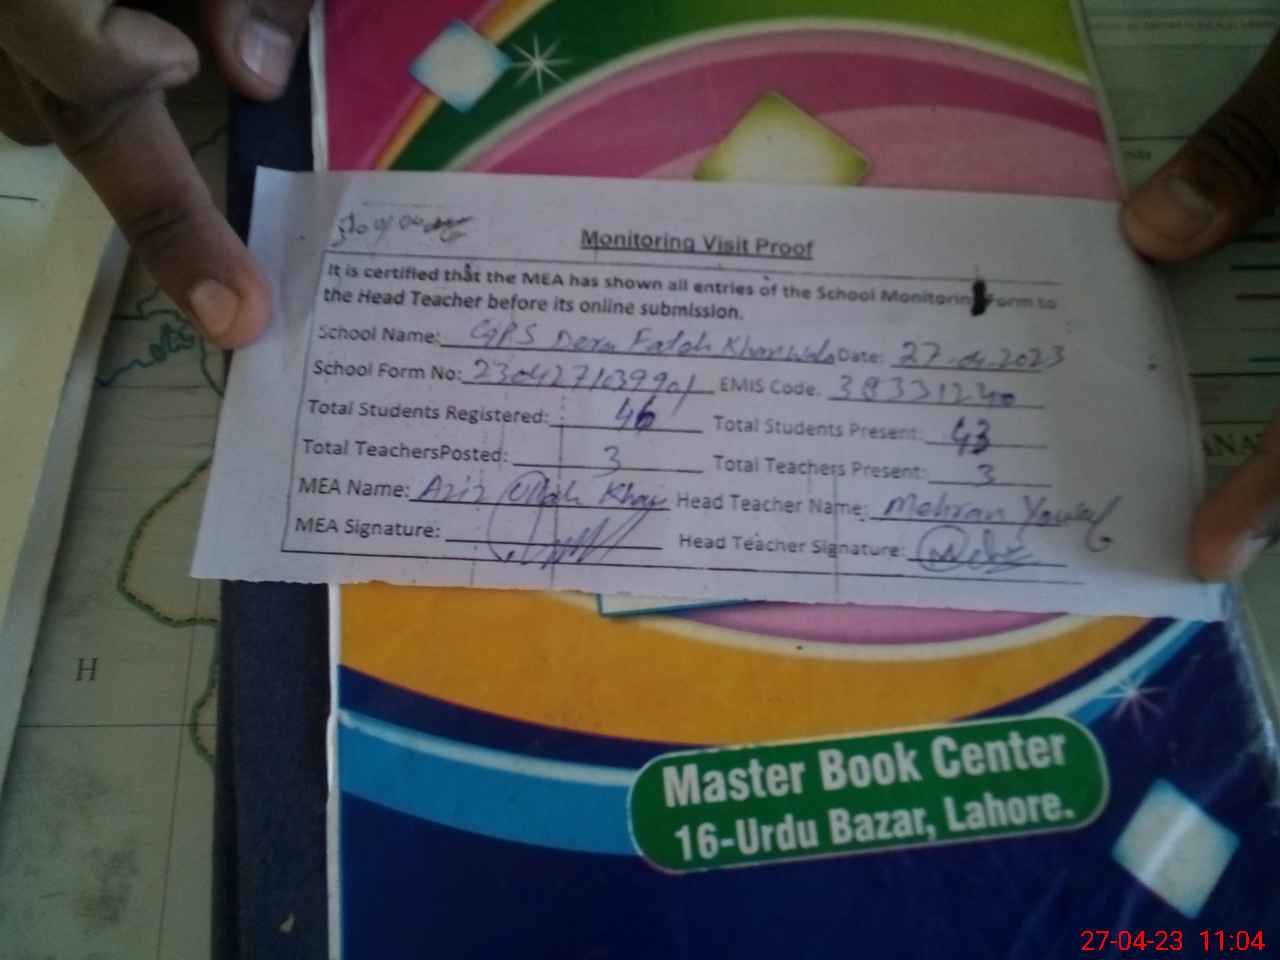 Monitoring Visit Proof
It is certified that the MEA has shown all entries of the School Monitoring Form to
the Head Teacher before its online submission.
School Name: GPS Dera Fatah Khanwala Date: 27.04.2023
School Form No: 2304271039901 EMIS Code. 38331240
Total Students Registered: 46 Total Students Present: 43
Total TeachersPosted: 3 Total Teachers Present: 3
MEA Name: Aziz Ullah Khan Head Teacher Name: Mehran Yousaf
MEA Signature: Head Teacher Signature:
H
Master Book Center
16-Urdu Bazar, Lahore.
27-04-23 11:04